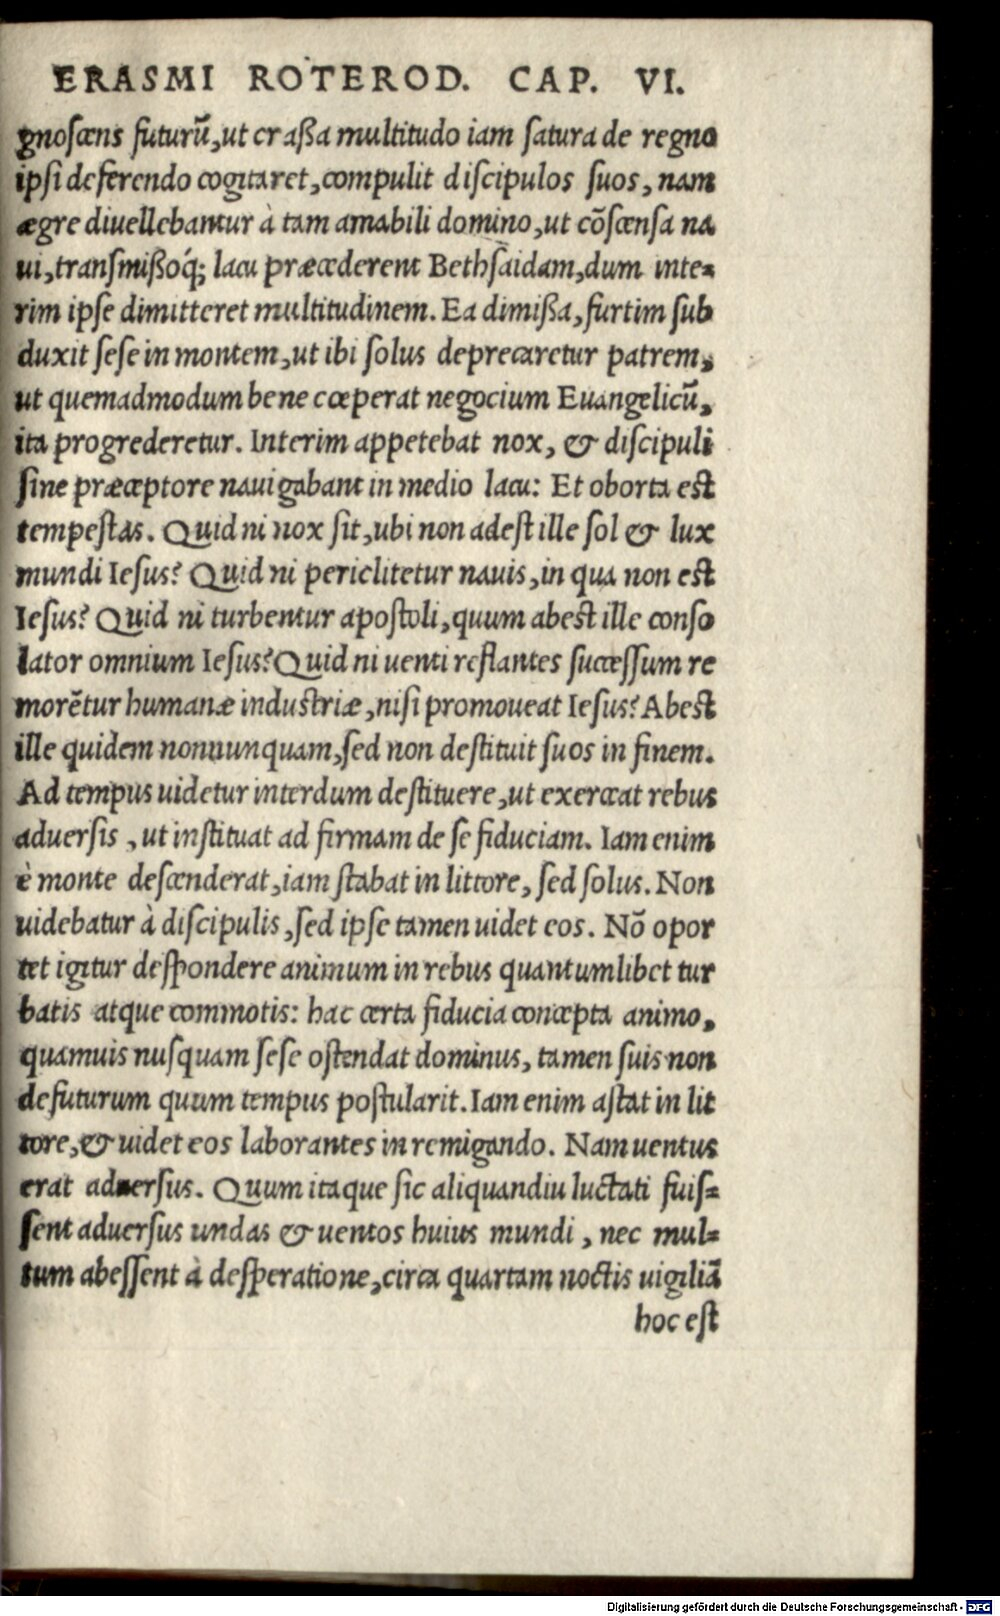 ERASMI ROTEROD. CAP. VI.
gnoscens futurũ, ut craßa multitudo iam satura de regno
ipsi deferendo cogitaret, compulit discipulos suos, nam
ægre diuellebantur à tam amabili domino, ut cõscensa na
ui, transmißoq́; lacu præcederent Bethsaidam, dum inte-
rim ipse dimitteret multitudinem. Ea dimißa, furtim sub
duxit sese in montem, ut ibi solus deprecaretur patrem,
ut quemadmodum bene cœperat negocium Euangelicũ,
ita progrederetur. Interim appetebat nox, & discipuli
sine præceptore nauigabant in medio lacu: Et oborta est
tempestas. Quid ni nox sit, ubi non adest ille sol & lux
mundi Iesus? Quid ni periclitetur nauis, in qua non est
Iesus? Quid ni turbentur apostoli, quum abest ille conso
lator omnium Iesus? Quid ni uenti reflantes successum re
morẽtur humanæ industriæ, nisi promoueat Iesus? Abest
ille quidem nonnunquam, sed non destituit suos in finem.
Ad tempus uidetur interdum destituere, ut exerceat rebus
aduersis, ut instituat ad firmam de se fiduciam. Iam enim
è monte descenderat, iam stabat in littore, sed solus. Non
uidebatur à discipulis, sed ipse tamen uidet eos. Nõ opor
tet igitur despondere animum in rebus quantumlibet tur
batis atque commotis: hac certa fiducia concepta animo,
quamuis nusquam sese ostendat dominus, tamen suis non
defuturum quum tempus postularit. Iam enim astat in lit
tore, & uidet eos laborantes in remigando. Nam uentus
erat aduersus. Quum itaque sic aliquandiu luctati fuis-
sent aduersus undas & uentos huius mundi, nec mul-
tum abessent à desperatione, circa quartam noctis uigiliã
hoc est
Digitalisierung gefördert durch die Deutsche Forschungsgemeinschaft - DFG